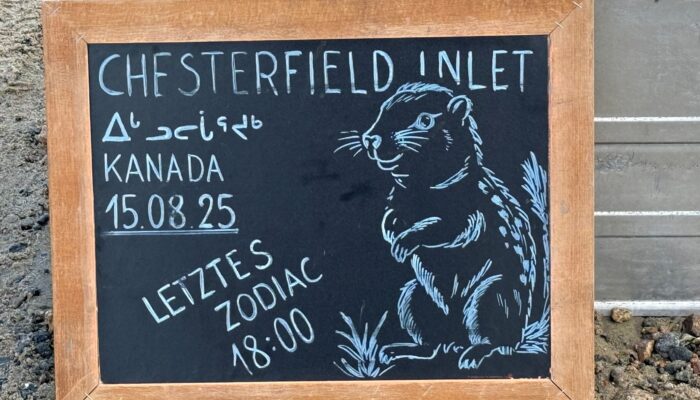 CHESTERFIELD INLET
ᐃᒡᓗᓕᒑᕐᔪᒃ
KANADA
15.08.25
LETZTES
ZODIAC
18:00